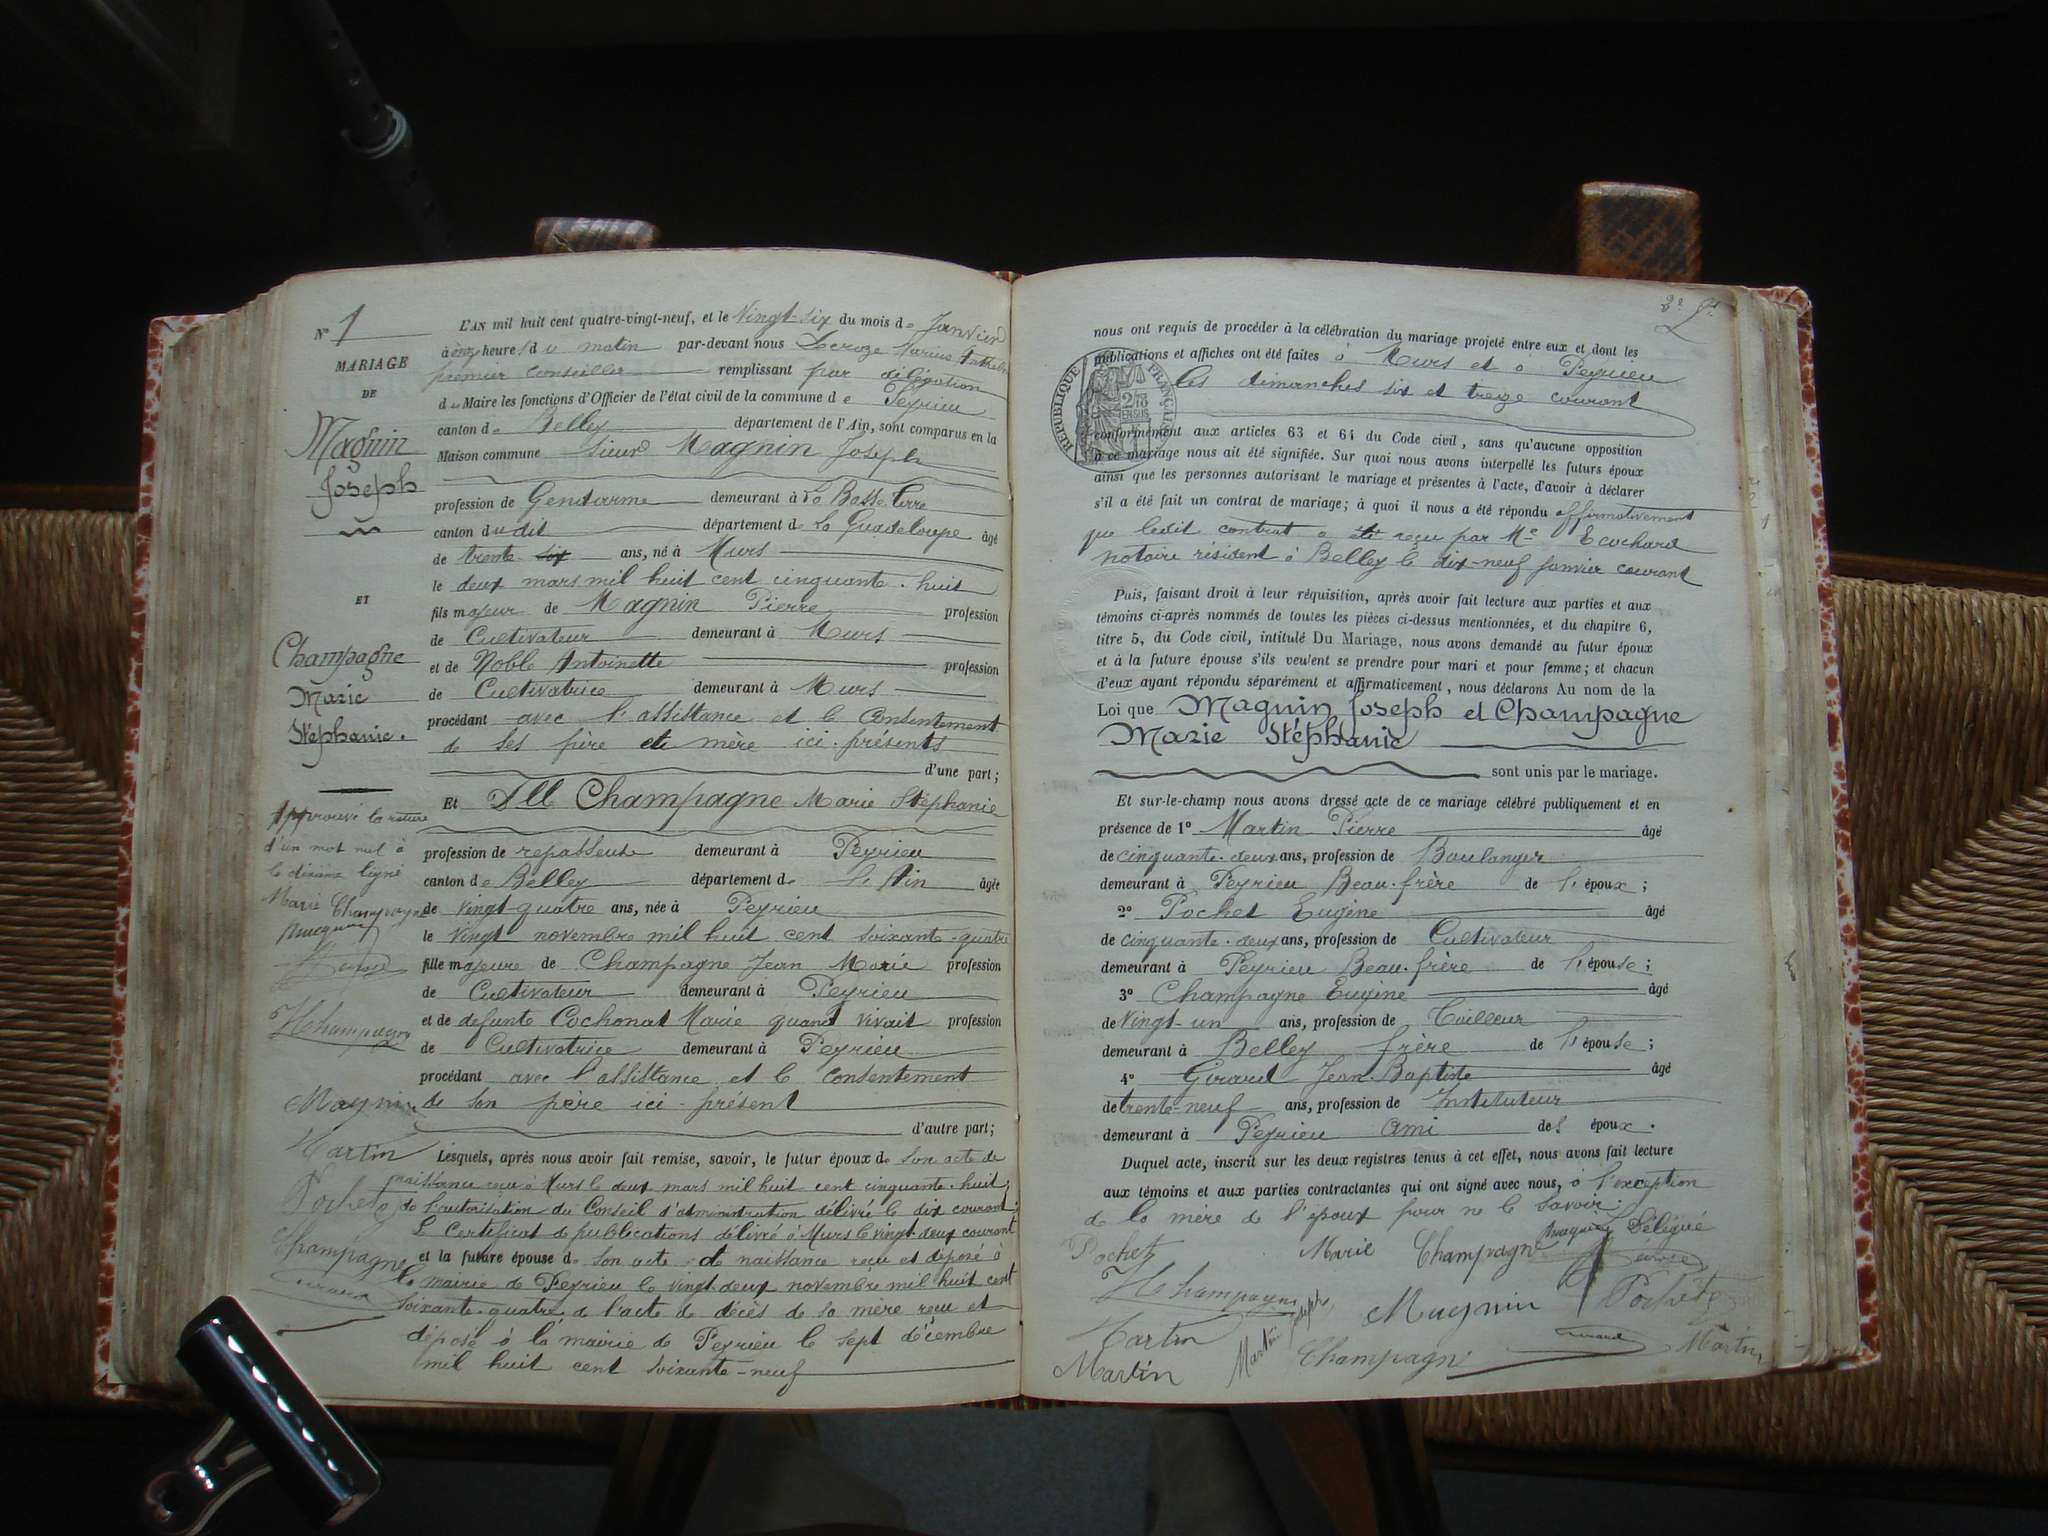 N° 1
MARIAGE
DE
Magnin
Joseph
ET
Champagne
Marie
Stéphanie.
Approuvé la rature
d'un mot nul à
la dixième ligne
Marie Champagne
Magnin
HChampagne
Magnin
Martin
Pochet
Champagne
L'AN mil huit cent quatre-vingt-neuf, et le Vingt-six du mois de Janvier
à onze heures du matin par-devant nous Lecroze Marius Anthelme
premier conseiller remplissant par délégation
du Maire les fonctions d'Officier de l'état civil de la commune de Peyrieu
canton de Belley département de l'Ain, sont comparus en la
Maison commune Sieur Magnin Joseph
profession de Gendarme demeurant à La Basse Terre
canton dudit département de La Guadeloupe âgé
de trente six ans, né à Murs
le deux mars mil huit cent cinquante-huit
fils majeur de Magnin Pierre profession
de Cultivateur demeurant à Murs
et de Noble Antoinette profession
de Cultivatrice demeurant à Murs
procédant avec l'assistance et le consentement
de ses père et mère ici-présents
d'une part;
Et Dlle Champagne Marie Stéphanie
profession de repasseuse demeurant à Peyrieu
canton de Belley département de l'Ain âgée
de vingt-quatre ans, née à Peyrieu
le Vingt novembre mil huit cent soixante-quatre
fille majeure de Champagne Jean Marie profession
de Cultivateur demeurant à Peyrieu
et de defunte Cochonat Marie quand vivait profession
de Cultivatrice demeurant à Peyrieu
procédant avec l'assistance et le consentement
de son père ici-présent
d'autre part;
Lesquels, après nous avoir fait remise, savoir, le futur époux de son acte de
naissance reçu à Murs le deux mars mil huit cent cinquante-huit;
de l'autorisation du Conseil d'administration délivré le dix courant;
Le Certificat de publications délivré à Murs le vingt-deux courant
et la future épouse de son acte de naissance reçu et déposé à
la mairie de Peyrieu le vingt-deux novembre mil huit cent
soixante-quatre, de l'acte de décès de sa mère reçu et
déposé à la mairie de Peyrieu le sept décembre
mil huit cent soixante-neuf
nous ont requis de procéder à la célébration du mariage projeté entre eux et dont les
publications et affiches ont été faites à Murs et à Peyrieu
les dimanches six et treize courant
RÉPUBLIQUE FRANÇAISE
conformément aux articles 63 et 64 du Code civil, sans qu'aucune opposition
à ce mariage nous ait été signifiée. Sur quoi nous avons interpellé les futurs époux
ainsi que les personnes autorisant le mariage et présentes à l'acte, d'avoir à déclarer
s'il a été fait un contrat de mariage; à quoi il nous a été répondu affirmativement
que ledit contrat a été reçu par Me Ecochard
notaire résident à Belley le dix-neuf janvier courant
Puis, faisant droit à leur réquisition, après avoir fait lecture aux parties et aux
témoins ci-après nommés de toutes les pièces ci-dessus mentionnées, et du chapitre 6,
titre 5, du Code civil, intitulé Du Mariage, nous avons demandé au futur époux
et à la future épouse s'ils veulent se prendre pour mari et pour femme; et chacun
d'eux ayant répondu séparément et affirmativement, nous déclarons Au nom de la
Loi que Magnin Joseph et Champagne
Marie Stéphanie
sont unis par le mariage.
Et sur-le-champ nous avons dressé acte de ce mariage célébré publiquement et en
présence de 1° Martin Pierre âgé
de cinquante-deux ans, profession de Boulanger
demeurant à Peyrieu Beau-frère de l'époux;
2° Pochet Eugène âgé
de cinquante-deux ans, profession de Cultivateur
demeurant à Peyrieu Beau-frère de l'épouse;
3° Champagne Eugène âgé
de Vingt-un ans, profession de Tailleur
demeurant à Belley frère de l'épouse;
4° Girard Jean-Baptiste âgé
de trente-neuf ans, profession de Instituteur
demeurant à Peyrieu ami des époux.
Duquel acte, inscrit sur les deux registres tenus à cet effet, nous avons fait lecture
aux témoins et aux parties contractantes qui ont signé avec nous, à l'exception
de la mère de l'époux pour ne le savoir.
Pochet Marie Champagne Magnin Délégué
HChampagne Magnin Pochet
Martin Martin Joseph Champagne Martin
Martin